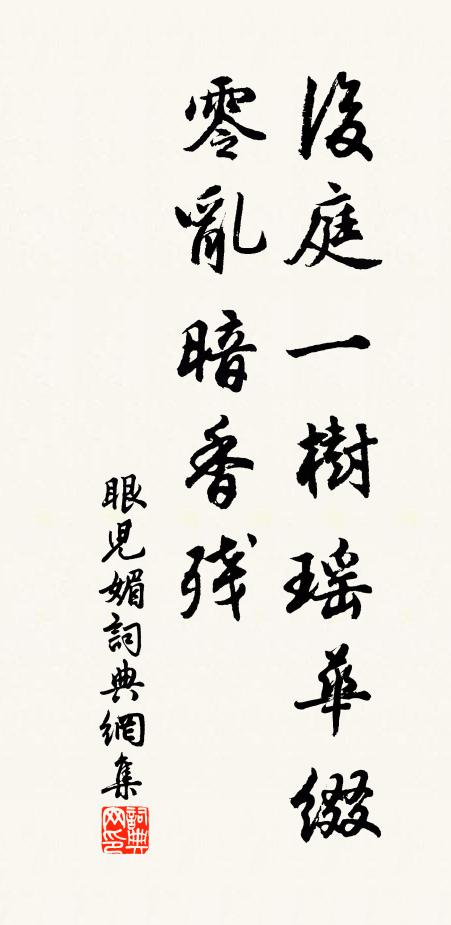 後庭一樹瑶華綴
零亂暗香残
眼児媚詞典網集
詞典网印